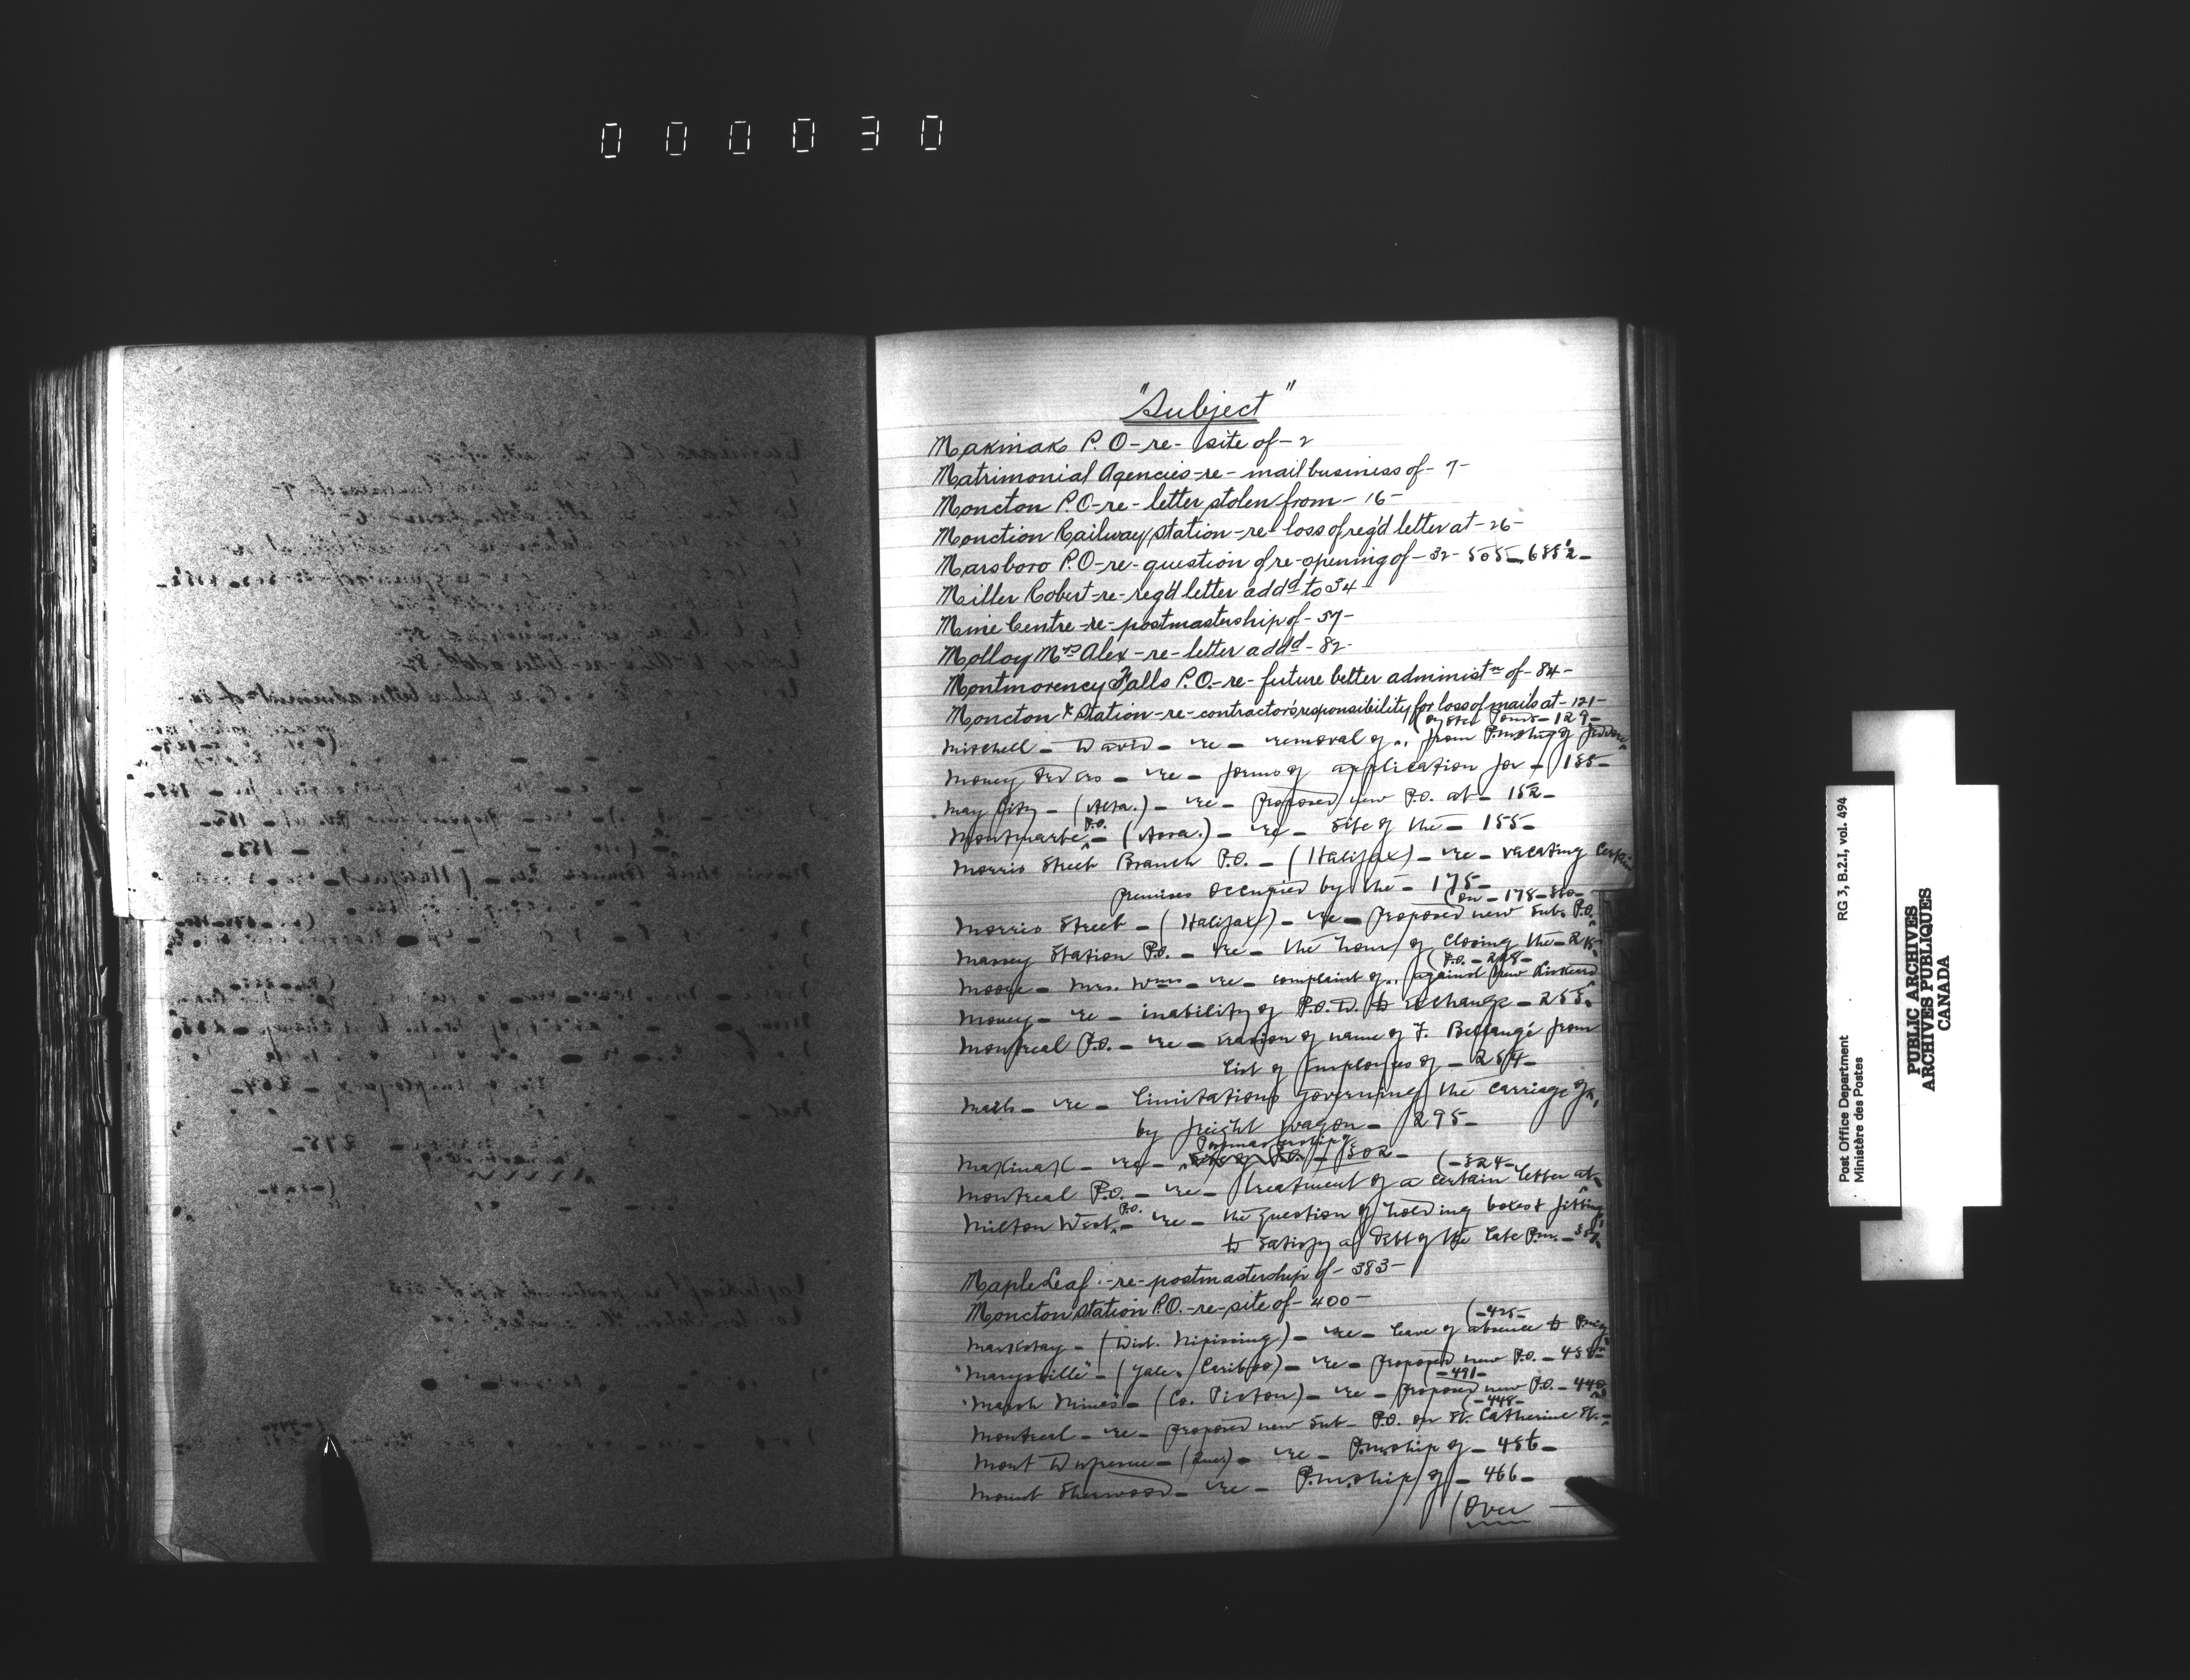 000030
"Subject"
Makinak P.O-re-site of-2
Matrimonial Agencies-re-mail business of-7-
Moncton P.O-re-letter stolen from-16-
Monction Railway Station-re-loss of reg'd letter at-26-
Marsboro P.O-re-question of re-opening of-32-505-685½-
Miller Robert-re-reg'd letter addd to 34-
Mine Centre-re-postmastership of-57-
Molloy Mrs Alex-re-letter addd-82-
Montmorency Falls P.O.-re-future better administn of-84-
Moncton & Station-re-contractor's responsibility for loss of mails at-121-
(Oyster Ponds-129-
Mitchell-David-re-removal of " from P.mship of Jeddore
Money Orders-re-forms of application for-135-
May City-(Alta.)-re-Proposed new P.O. at-152-
P.O.
Montmartre-(Assa.)-re-Site of the-155-
Morris Street Branch P.O.-(Halifax)-re-vacating certain
premises occupied by the-175-
(on-178-380-
Morris Street-(Halifax)-re-Proposed new Sub. P.O.
Massey Station P.O.-re-the hour of closing the-
(P.O.-228-
Moore-Mrs. Wm-re-complaint of " against New Liskeard
Money-re-inability of P.O.D. to exchange-255-
Montreal P.O.-re-erasion of name of F. Bellangé from
List of Employees of-264-
Mails-re-Limitations governing the carriage of,
by freight wagon-295-
Postmastership
Makinak-re-of-302-
(-324-
Montreal P.O.-re-treatment of a certain letter at
P.O.
Milton West-re-the question of holding boxes & fittings
to satisfy a debt of the late P.m.-
Maple Leaf-re-postmastership of-383-
Moncton Station P.O.-re-site of-400-
(-425-
Markstay-(Dist. Nipissing)-re-leave of absence to P.m. of
"Marysville"-(Yale, Cariboo)-re-Proposed new P.O.-435-
(-491-
"Marsh Mines"-(Co. Pictou)-re-Proposed new P.O.-440
(-448-
Montreal-re-proposed new Sub-P.O. on St. Catherine St.-
Mont Dufresne-(Que)-re-P.mship of-456-
Mount Sherwood-re-P.m.ship of-466-
(Over
RG 3, B.2.I, vol. 494
Post Office Department
Ministère des Postes
PUBLIC ARCHIVES
ARCHIVES PUBLIQUES
CANADA